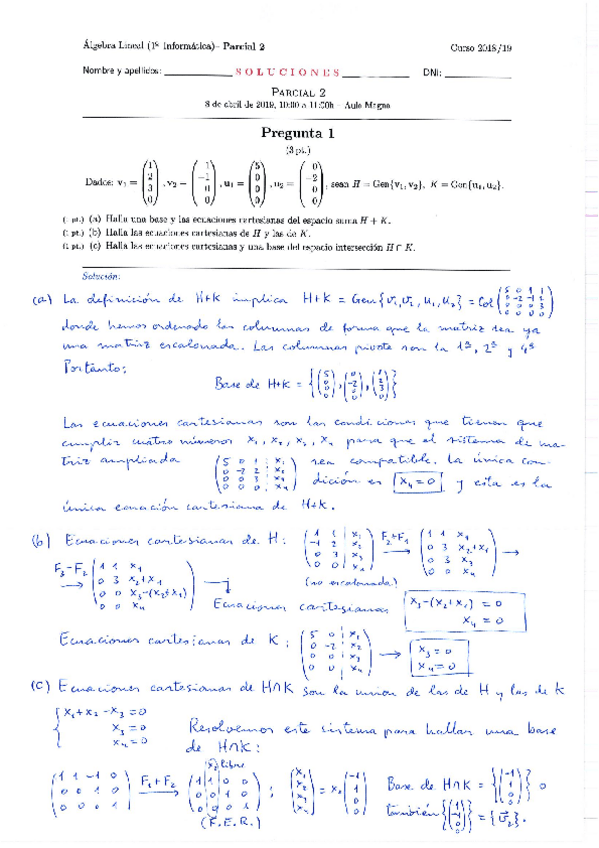 Álgebra Lineal (1º Informática)– Parcial 2 Curso 2018/19
Nombre y apellidos: SOLUCIONES DNI:
PARCIAL 2
8 de abril de 2019, 10:00 a 11:00h – Aula Magna
Pregunta 1
(3 pt.)
Dados: v₁ = (1 2 3 0), v₂ = (1 −1 0 0), u₁ = (5 0 0 0), u₂ = (0 −2 0 0), sean H = Gen{v₁, v₂}, K = Gen{u₁, u₂}.
(1 pt.) (a) Halla una base y las ecuaciones cartesianas del espacio suma H + K.
(1 pt.) (b) Halla las ecuaciones cartesianas de H y las de K.
(1 pt.) (c) Halla las ecuaciones cartesianas y una base del espacio intersección H ∩ K.
Solución:
(a) La definición de H+K implica H+K = Gen{v₁, v₂, u₁, u₂} = Col (5 0 1 1 / 0 -2 -1 2 / 0 0 0 3 / 0 0 0 0)
donde hemos ordenado las columnas de forma que la matriz sea ya
una matriz escalonada. Las columnas pivote son la 1ª, 2ª y 4ª
Por tanto:
Base de H+K = {(5 0 0 0), (0 -2 0 0), (1 2 3 0)}
Las ecuaciones cartesianas son las condiciones que tienen que
cumplir cuatro números x₁, x₂, x₃, x₄ para que el sistema de ma-
triz ampliada (5 0 1 | x₁ / 0 -2 2 | x₂ / 0 0 3 | x₃ / 0 0 0 | x₄) sea compatible. La única con-
dición es x₄=0 y esta es la
única ecuación cartesiana de H+K.
(b) Ecuaciones cartesianas de H: (1 1 | x₁ / -1 2 | x₂ / 0 3 | x₃ / 0 0 | x₄) F₂+F₁ → (1 1 x₁ / 0 3 x₂+x₁ / 0 3 x₃ / 0 0 x₄) →
(no escalonada)
F₃-F₂ → (1 1 x₁ / 0 3 x₂+x₁ / 0 0 x₃-(x₂+x₁) / 0 0 x₄) → Ecuaciones cartesianas x₃-(x₂+x₁) = 0
x₄ = 0
Ecuaciones cartesianas de K: (5 0 | x₁ / 0 -2 | x₂ / 0 0 | x₃ / 0 0 | x₄) → x₃ = 0
x₄ = 0
(C) Ecuaciones cartesianas de H∩K son la union de las de H y las de K
{ x₁+x₂-x₃=0
x₃=0 Resolvemos este sistema para hallar una base
x₄=0 de H∩K:
x₂ libre
(1 1 -1 0 / 0 0 1 0 / 0 0 0 1) F₁+F₂ → (1 1 0 0 / 0 0 1 0 / 0 0 0 1) ; (x₁ x₂ x₃ x₄) = x₂ (-1 1 0 0) Base de H∩K = {(-1 1 0 0)} o
(F.E.R.) también {(1 -1 0 0)} = {v₂}.